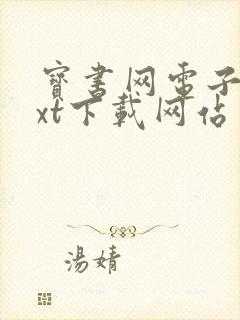 寳書网電子
xt下載网佔
湯婧